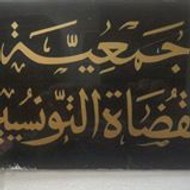 جمعيّة
القضاة التّونسيين